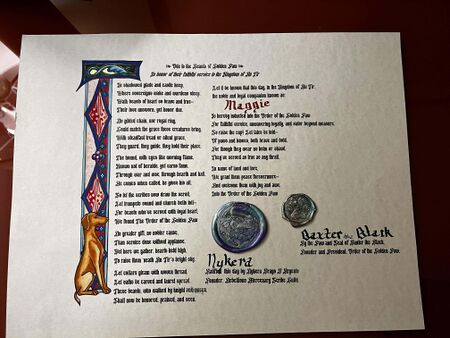 Ode to the Beasts of Golden Paw
In honor of their faithful service to the Kingdom of An Tir
In shadowed glade and castle keep,
Where sovereigns wake and warriors sleep,
With beasts of heart on heart and true—
Their love unsworn, yet honor due.
No gilded chain, nor royal ring,
Could match the grace these creatures bring.
With steadfast tread or silent grace,
They guard, they guide, they hold their place.
The hound, with eyes like morning flame,
Through war and woe, through hearth and hall,
He comes when called, he gives his all.
So let the scribes now from the scroll,
Let trumpets sound and church bells toll—
For beasts who've served with loyal heart,
We found The Order of the Golden Paw
No greater gift, no nobler cause,
Than service done without applause.
Yet here we gather, hearts held high,
To raise them 'neath An Tir's bright sky.
Let collars gleam with woven thread,
Let oaths be carved and laurel spread.
These beasts, who walked by knight and
Shall now be honored, praised, and seen.
Let it be known that this day, in the Kingdom of An Tir
the noble and loyal companion known as
Maggie
Is hereby inducted into the Order of the Golden Paw
For faithful service, unwavering loyalty, and valor beyond measure.
So raise the cup! Let tales be told—
Of paws and hooves, both brave and bold.
For though they wear no helm or shield,
They've served as true as any
In name of land and law,
We grant them peace forevermore—
And welcome them with joy and awe,
Into the Order of the Golden Paw
Nykera
Founder, Rebellious Mercenary Scribe Guild
Baxter the Black
By the Paw and Seal of Baxter the Black,
Founder and President, Order of the Golden Paw